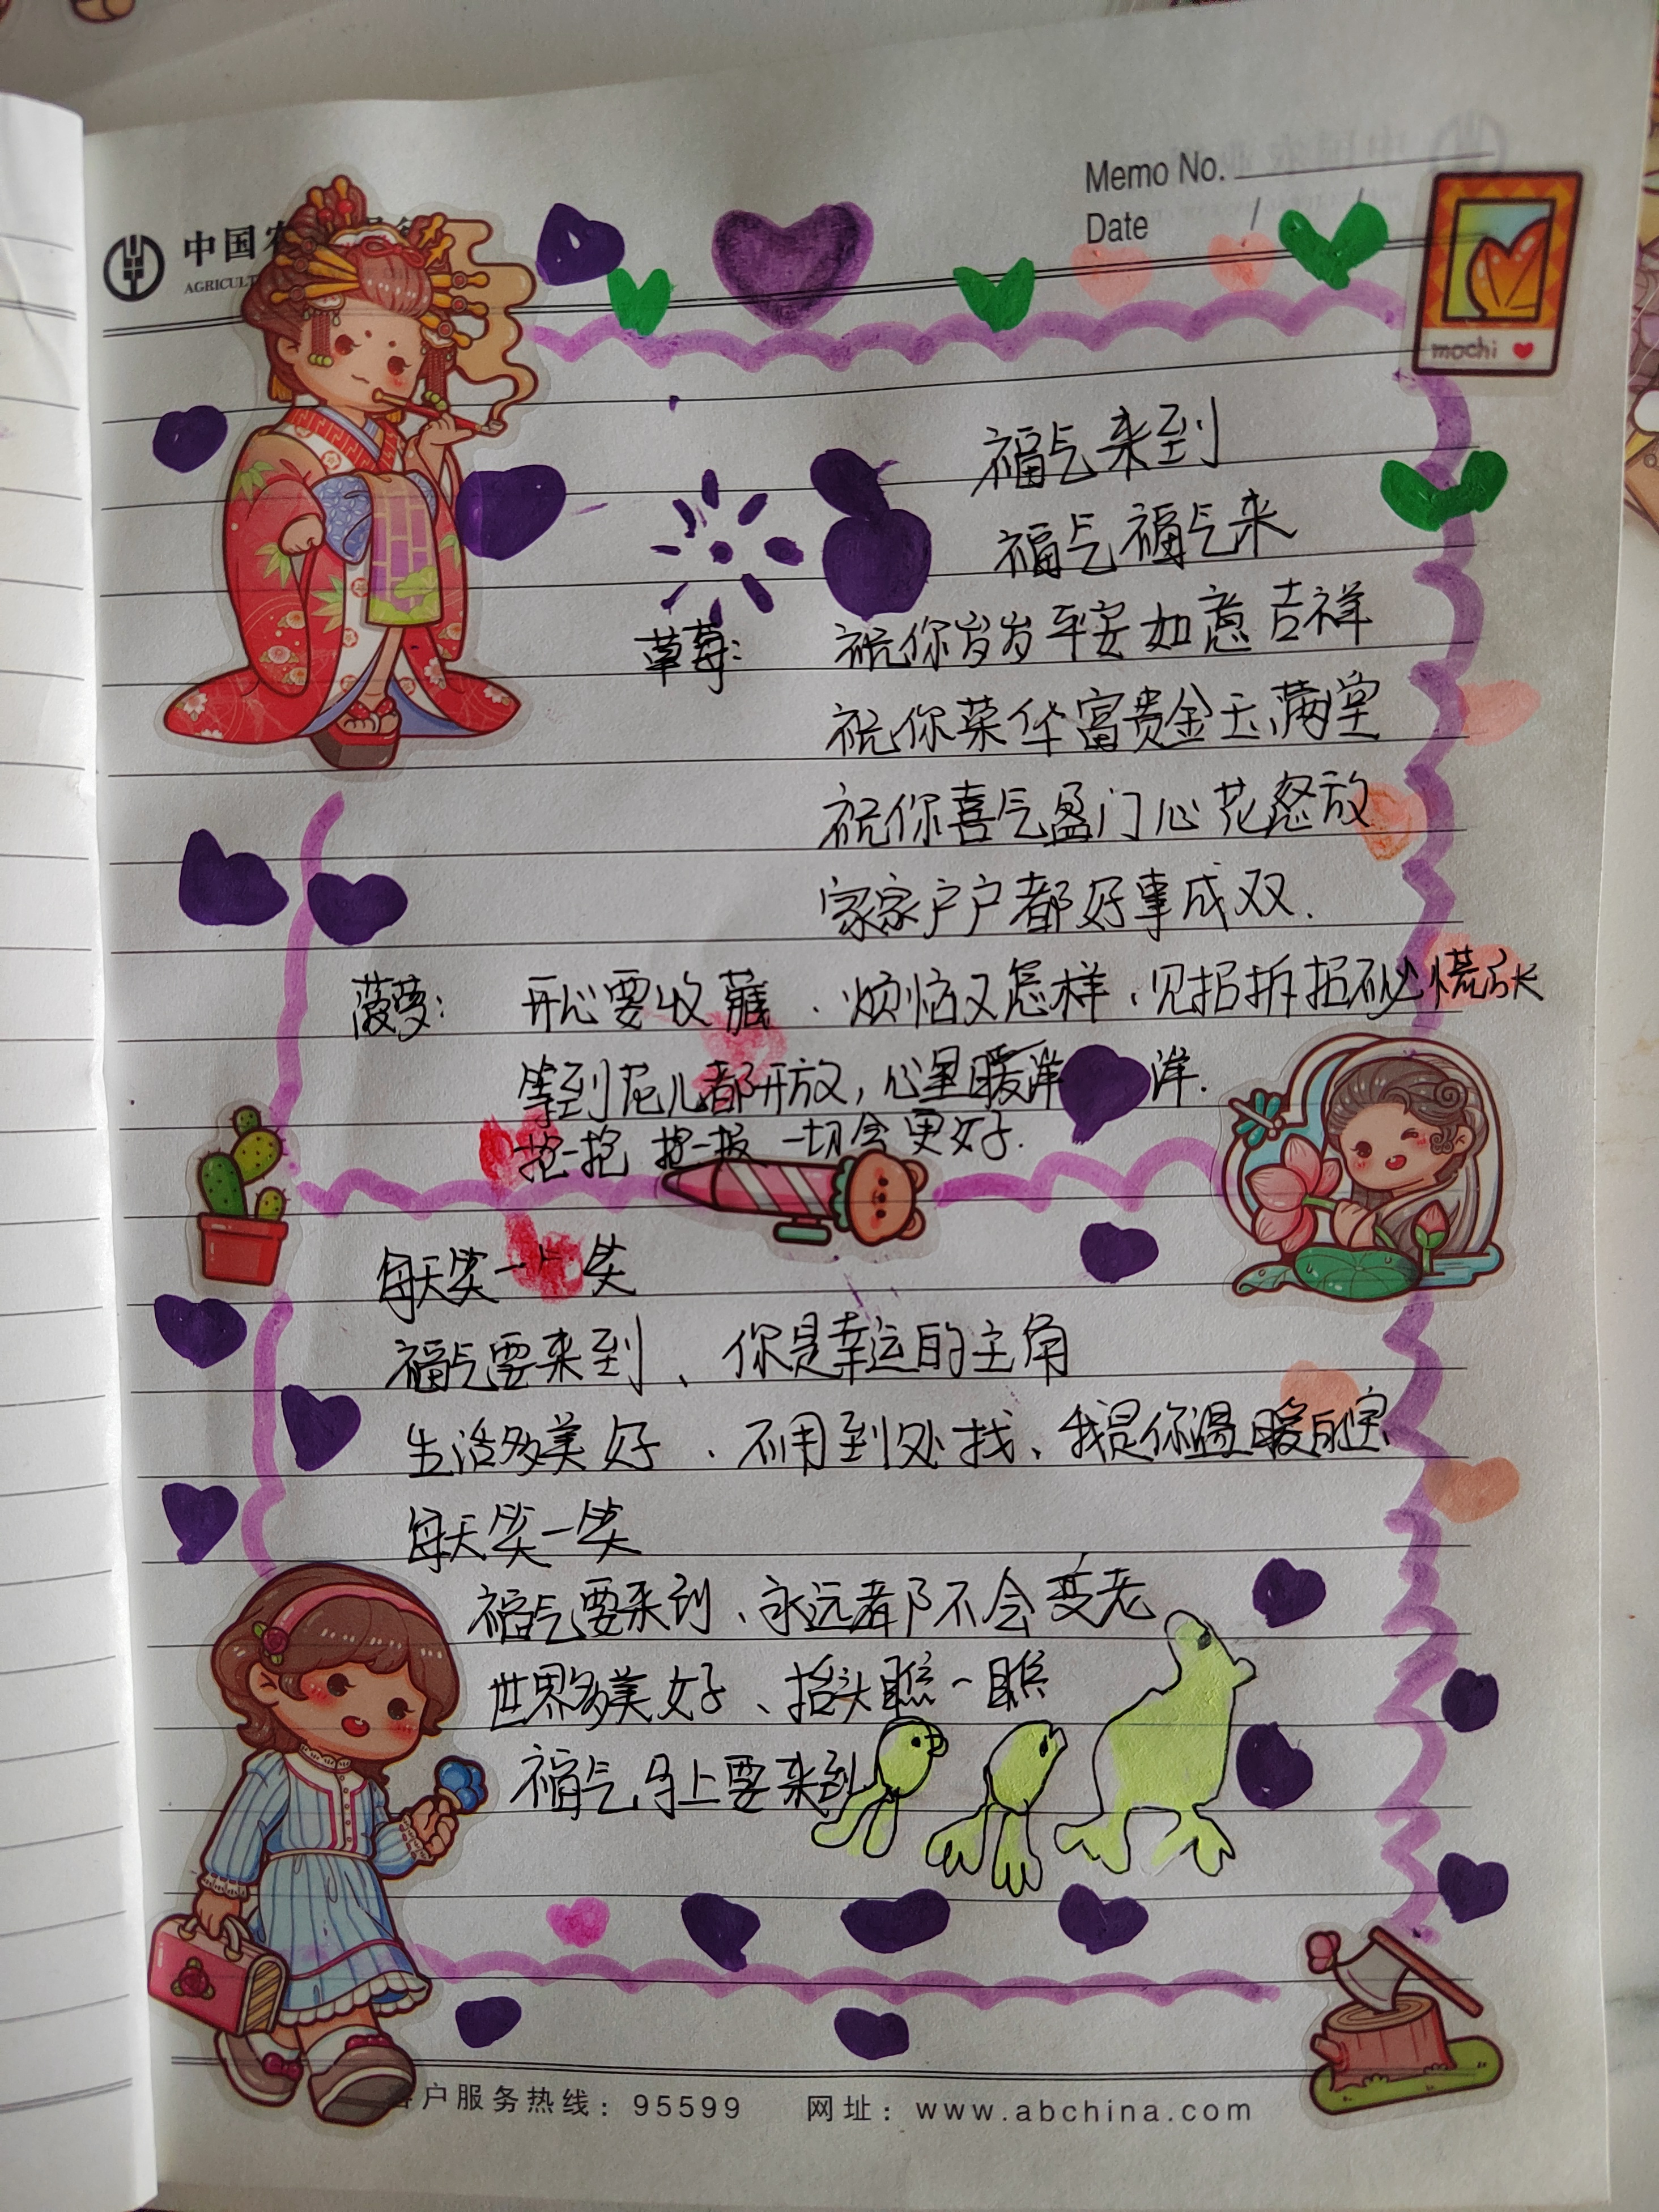 Memo No.
Date / /
中国农
AGRICULT
mochi
福气来到
福气福气来
草莓: 祝你岁岁平安如意吉祥
祝你荣华富贵金玉满堂
祝你喜气盈门心花怒放
家家户户都好事成双.
菠萝: 开心要收藏、烦恼又怎样、见招拆招不必慌张
等到花儿都开放,心里暖洋洋.
抱一抱 一切会更好.
每天笑一笑
福气要来到、你是幸运的主角
生活多美好、不用到处找、我是你温暖的宝
每天笑一笑
福气要来到、永远都不会变老
世界多美好、抬头瞧一瞧
福气马上要来到
客户服务热线: 95599 网址: www.abchina.com